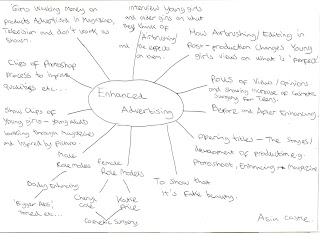 Girls Wasting Money on
products Advertised in Magazines,
Television and don't work as
shown.
Interview Young girls
and older girls on what
they think of
'Airbrushing'
and the effects
on them.
How Airbrushing / Editing in
Post-production Changes Young
girls views on what is 'perfect'
Clips of Photoshop
process to inform
audiences etc...
Enhanced
Advertising
Polls of Views / opinions
and showing increase of cosmetic
Surgery for Teens.
Before and After Enhancing.
Show Clips of
Young girls - Young adults
looking through Magazines
and inspired by Actors.
Opening titles - The Stages/
development of production e.g.
Photoshoot, Enhancing, Magazine
Male
Role models
Female
Role Models
To show that
it's Fake beauty.
Body Enhancing
Bigger Abs,
toned etc...
Cheryl
Cole
Katie
Price
Cosmetic Surgery
Asia